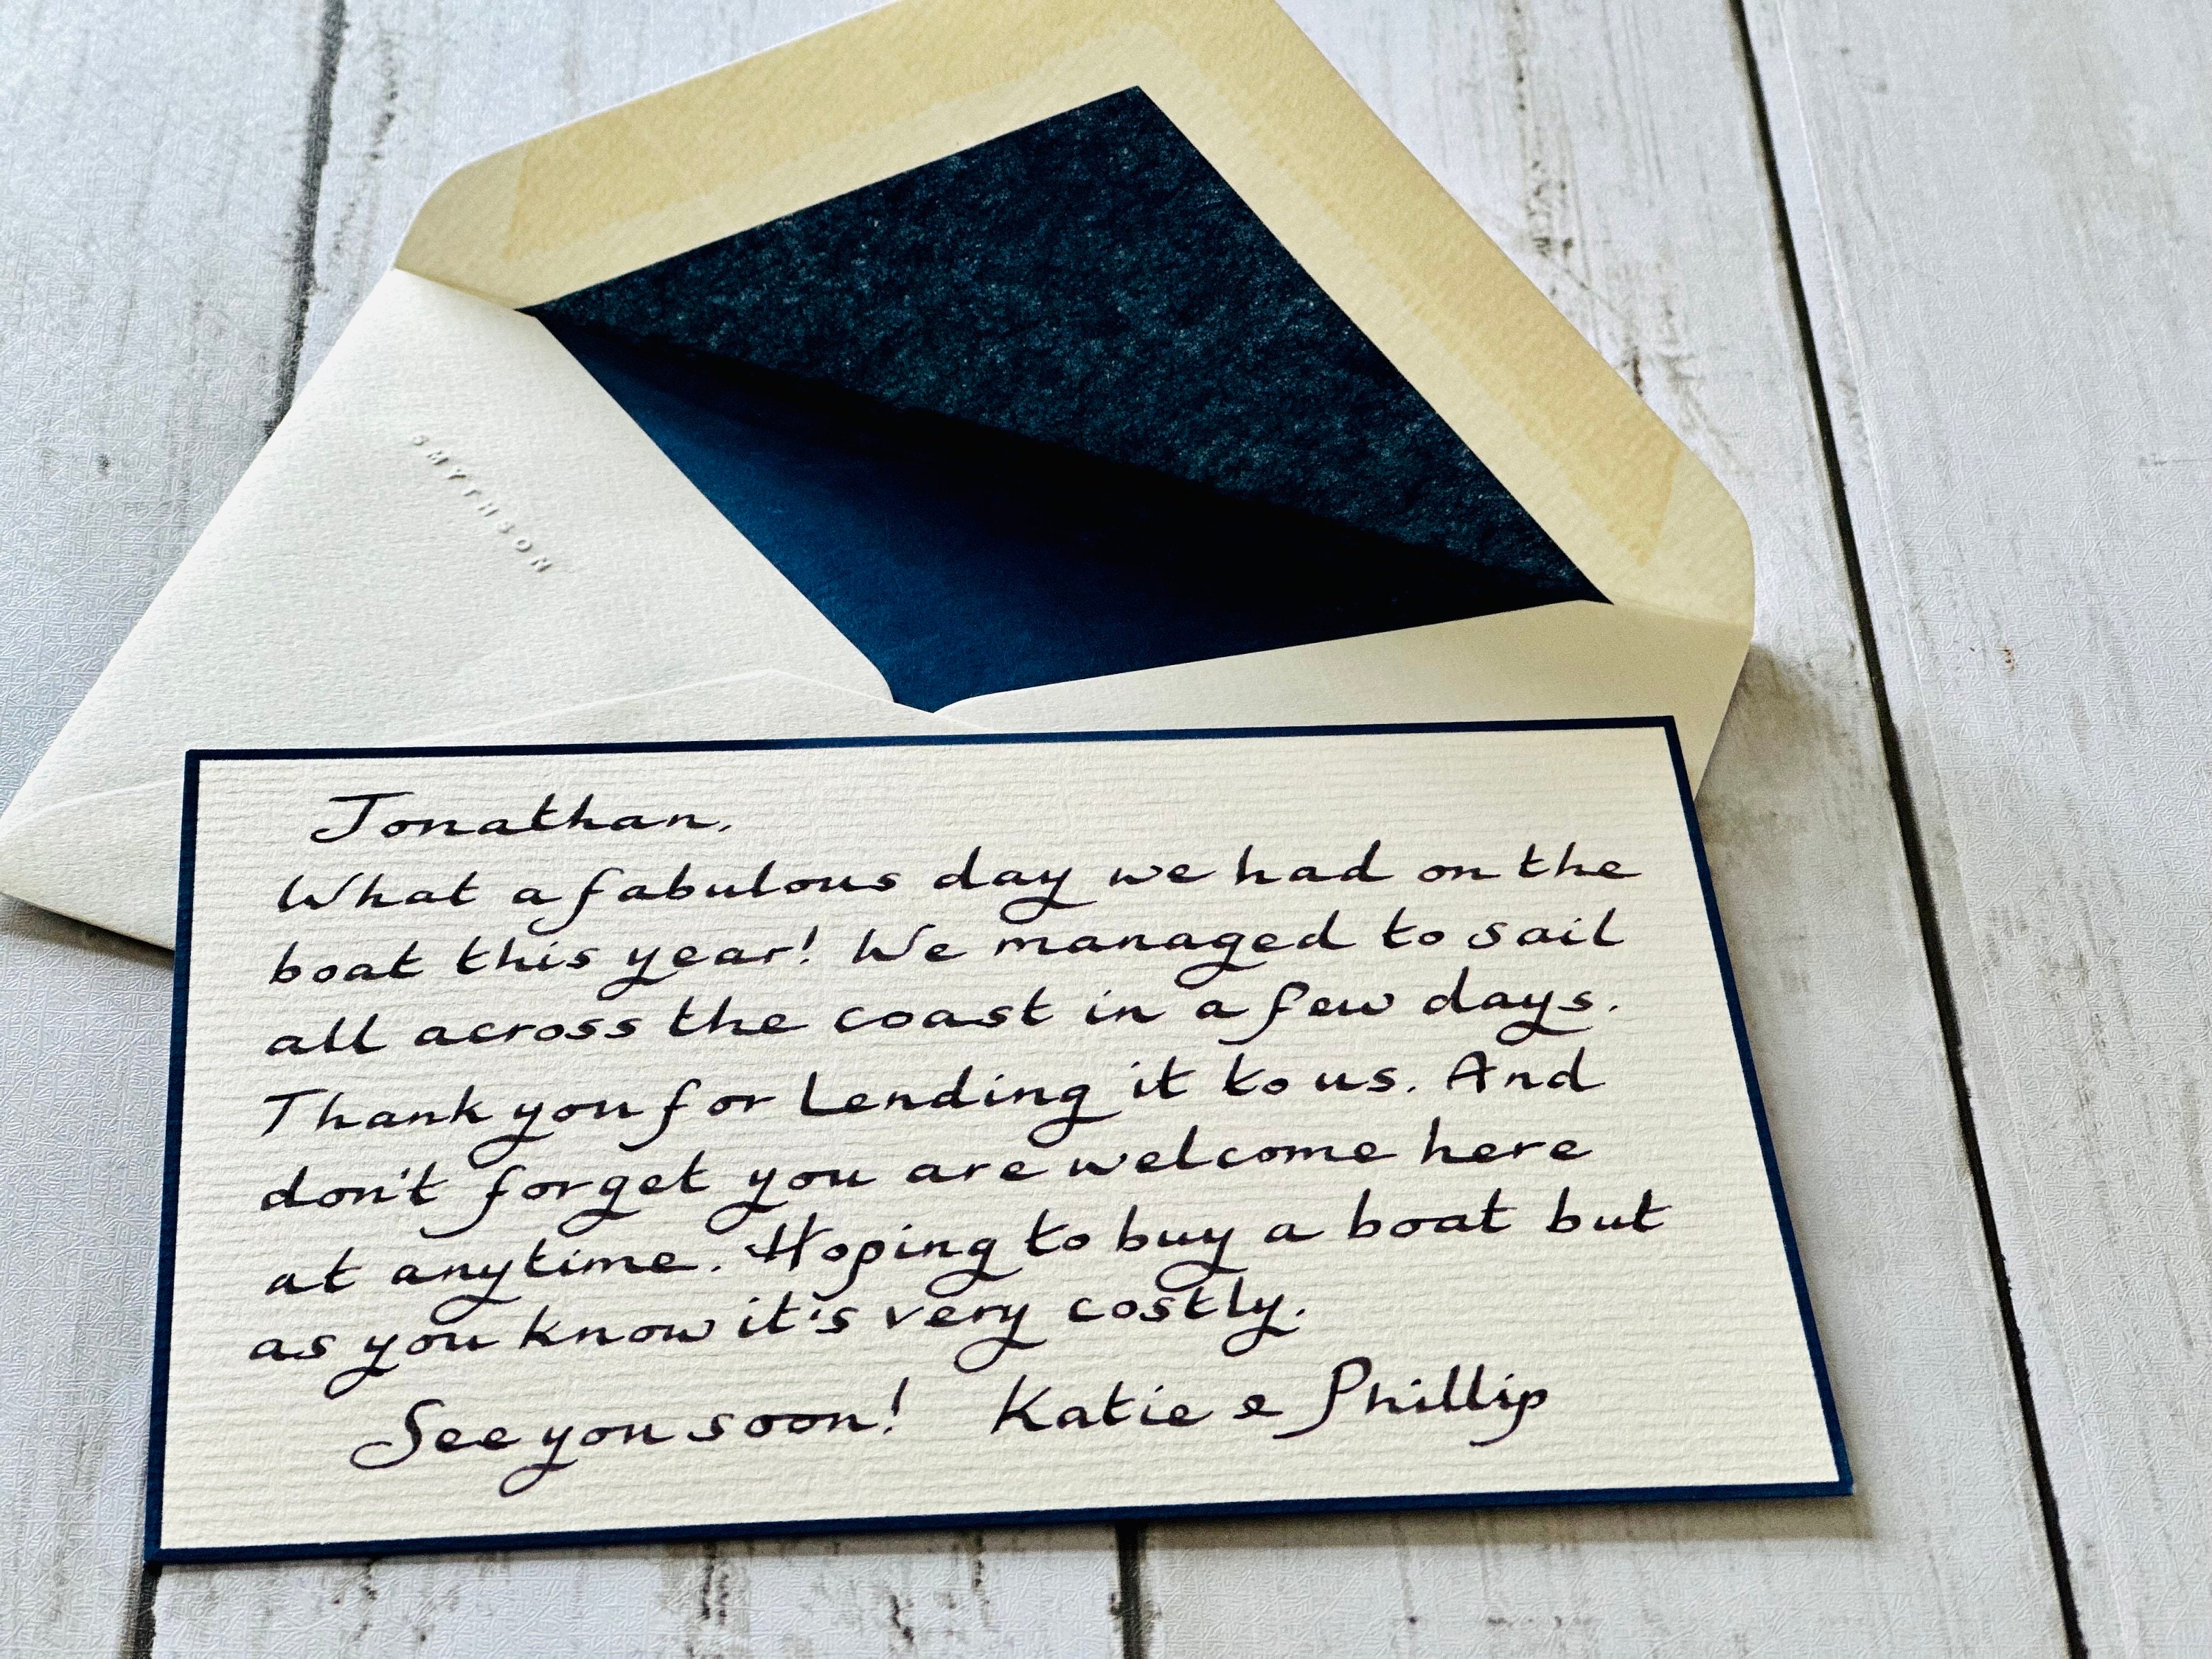 SMYTHSON
Jonathan,
What a fabulous day we had on the
boat this year! We managed to sail
all across the coast in a few days.
Thank you for lending it to us. And
don't forget you are welcome here
at anytime. Hoping to buy a boat but
as you know it's very costly.
See you soon! Katie & Phillip